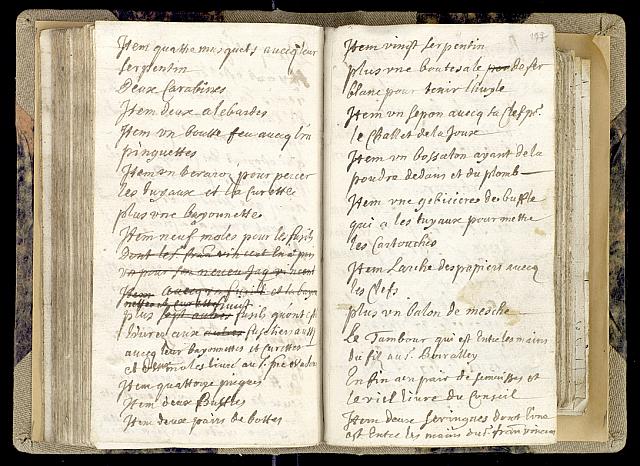 Item quattre musquets aucq leur
serpentin
Deux Carabines
Item deux alebardes
Item vn boutte feu aucq les
pinguettes
Item vn beraro pour percer
les tuyaux et la Curette
plus vne bayounette
Item neuf moles pour les fusils
dont les
vn pour son neueu Jaq vincent
Item et la bayo
plus fusils quont
liurez aux autres fuseliers
aucq leur bayonnettes et Curettes
et moles liuré au Sr
Item quattorze piques
Item deux Buffles
Item deux pairs de bottes
197
Item vingt serpentin
plus vne boutesale de fer
blanc pour tenir
Item vn Sepon aucq sa Clef pr
le Challet de la Joux
Item vn bossaton ayant de la
poudre dedans et du plomb
Item vne gibicieres de buffle
qui a les tuyaux pour mettre
les Cartouches
Item Larche des papiers aucq
les Clefs
plus vn balon de mesche
Le Tambour qui est Entre les mains
du fil au Sr
Enfin vn pair de et
le viel liure du Conseil
Item deux Seringues dont l'vne
est Entre les mains du Sr fran vincent